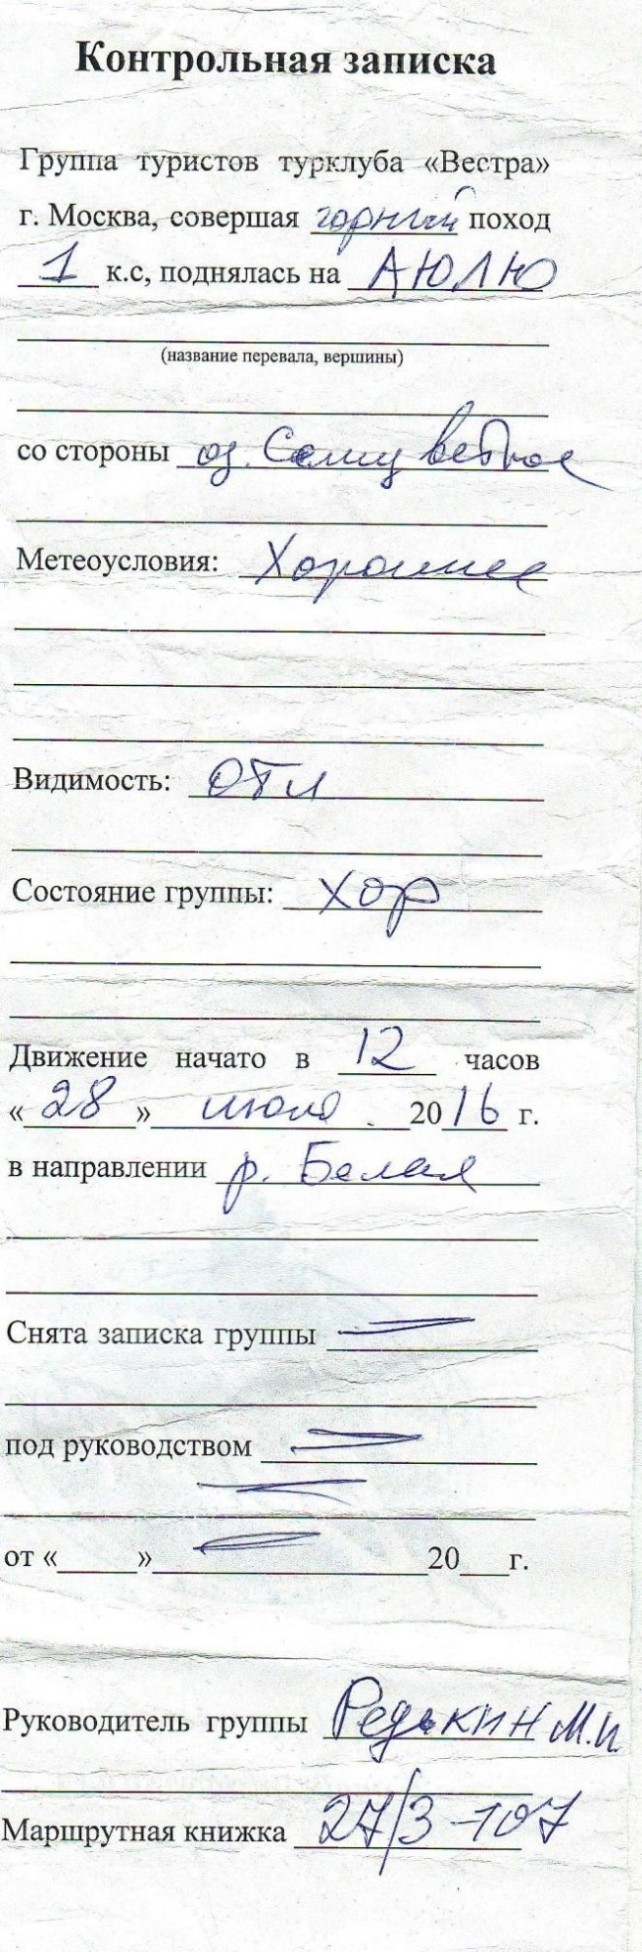 Контрольная записка
Группа туристов турклуба «Вестра»
г. Москва, совершая горный поход
1 к.с, поднялась на АЮЛЮ
(название перевала, вершины)
со стороны оз. Семицветное
Метеоусловия: Хорошие
Видимость: отл
Состояние группы: хор
Движение начато в 12 часов
«28» июля 2016 г.
в направлении р. Белая
Снята записка группы —
под руководством —
—
от «   » — 20   г.
Руководитель группы Редькин М.И.
Маршрутная книжка 27/3-107